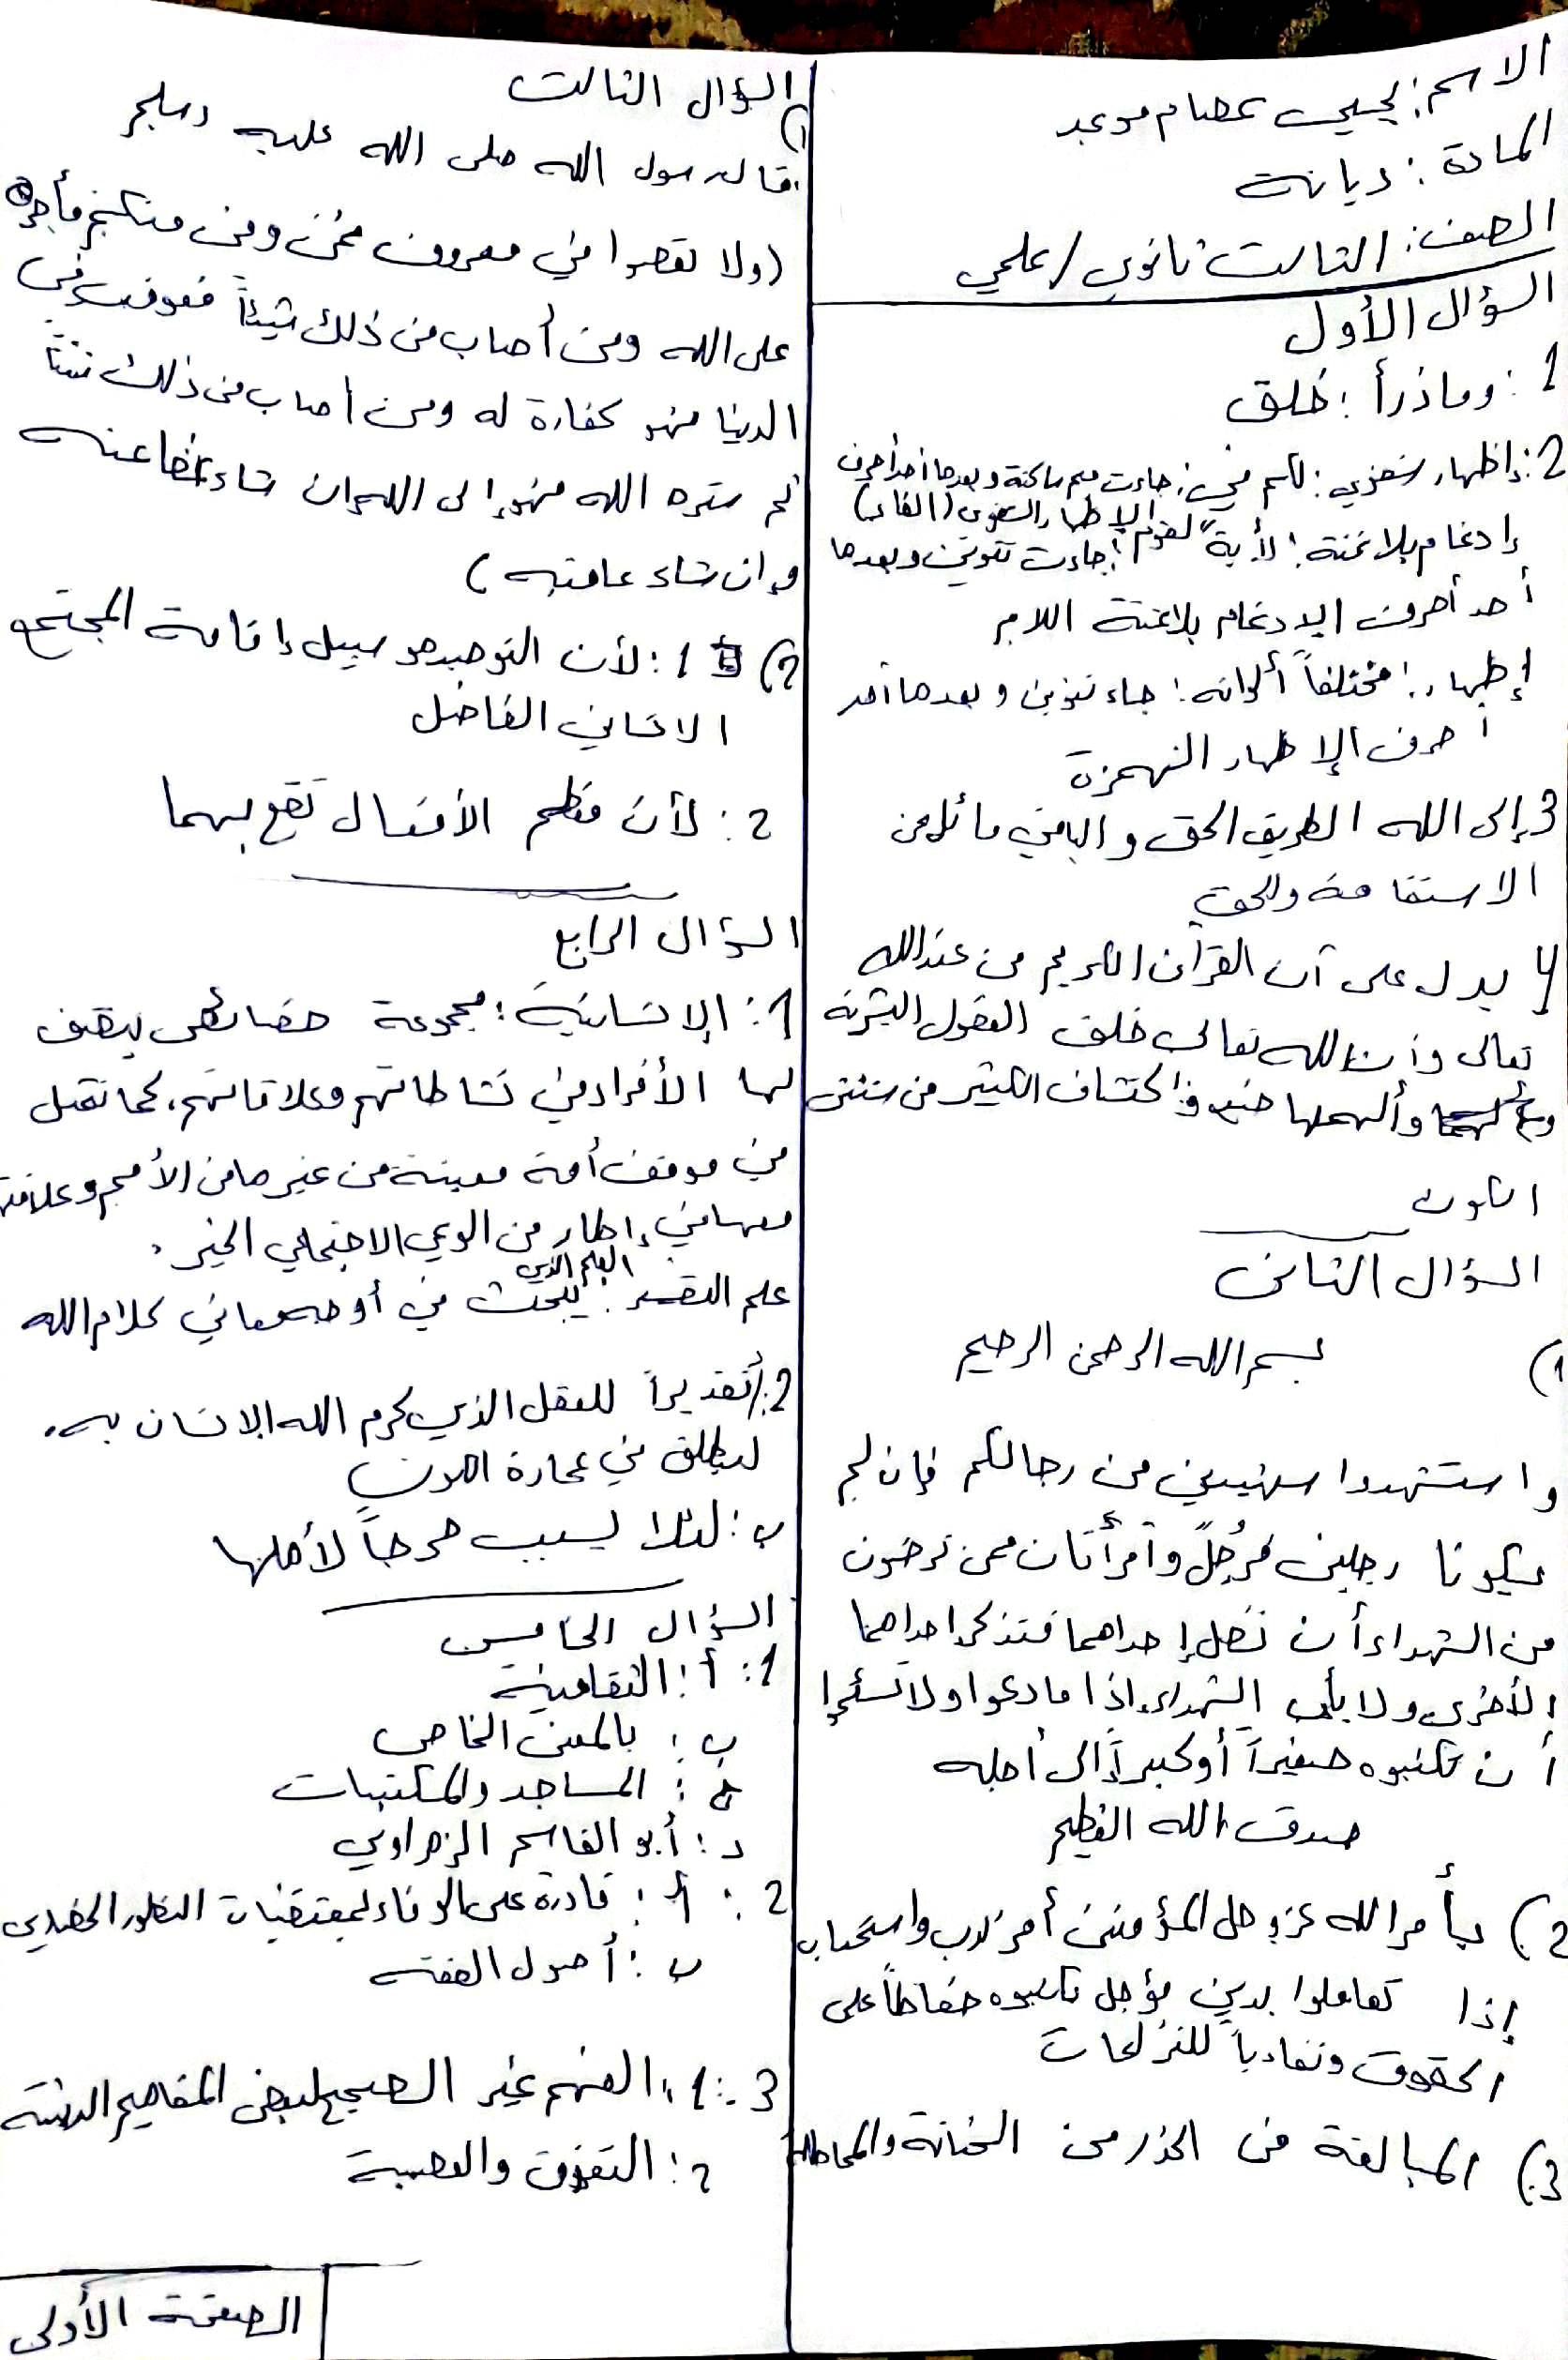 الاسم: يحيى عصام موعد
المادة: ديانة
الصف: الثالث ثانوي / علمي
السؤال الأول
1: وما ذرأ: خلق
2: إظهار شفوي: لكم في: جاءت ميم ساكنة وبعدها أحد أحرف
الإظهار الشفوي (الفاء)
إدغام بلا غنة: لأية لقوم: جاءت تنوين وبعدها
أحد أحرف الإدغام بلا غنة اللام
إظهار: مختلفاً ألوانه: جاء تنوين وبعدها أحد
أحرف الإظهار الهمزة
3 إلى الله الطريق الحق والباقي مائل من
الاستقامة والحق
4 يدل على أن القرآن الكريم من عند الله
تعالى وأن الله تعالى خلق العقول البشرية
وألهمها اكتشاف الكثير من سنن
الكون
السؤال الثاني
1) بسم الله الرحمن الرحيم
واستشهدوا شهيدين من رجالكم فإن لم
يكونا رجلين فرجلٌ وامرأتان ممن ترضون
من الشهداء أن تضل إحداهما فتذكر احداهما
الأخرى ولا يأب الشهداء اذا ما دعوا ولا تسئموا
أن تكتبوه صغيراً أو كبيراً إلى أجله
صدق الله العظيم
2) يأمر الله عز وجل المؤمنين أمر ندب واستحباب
إذا تعاملوا بدين مؤجل تكتبوه حفاظاً على
الحقوق وتفادياً للنزاعات
3:) المبالغة في الحذر من الخيانة والمماطلة
السؤال الثالث
1)
قال رسول الله صلى الله عليه وسلم
(ولا تعصوا في معروف فمن وفى منكم فأجره
على الله ومن أصاب من ذلك شيئاً فعوقب في
الدنيا فهو كفارة له ومن اصاب من ذلك شيئاً
ثم ستره الله فهو إلى الله إن شاء عفا عنه
وإن شاء عاقبه)
2) 1: لأن التوحيد هو سبيل إقامة المجتمع
الانساني الفاضل
2: لأن معظم الأفعال تقع بهما
السؤال الرابع
1: الإنسانية: مجموعة خصائص يتصف
لها الأفراد في نشاطاتهم وعلاقاتهم، كما تتمثل
في موقف أمة معينة من غيرها من الأمم وعلاقته
معها في إطار من الوعي الاجتماعي الخير.
علم التفسير: العلم الذي يبحث في أوجه معاني كلام الله
2: أ تقديراً للعقل الذي كرم الله الإنسان به.
لينطلق في عمارة الكون
ب: لئلا يسبب حرجاً لأهلها
السؤال الخامس
1: أ: الثقافية
ب: بالمعنى الخاص
ج: المساجد والمكتبات
د: أبو القاسم الزهراوي
2: أ: قادرة على الوفاء لمقتضيات التطور الحضاري
ب: أصول الفقه
3: 1: الفهم غير الصحيح لبعض المفاهيم الدينية
2: التفرق والعصبية
الصفحة الأولى